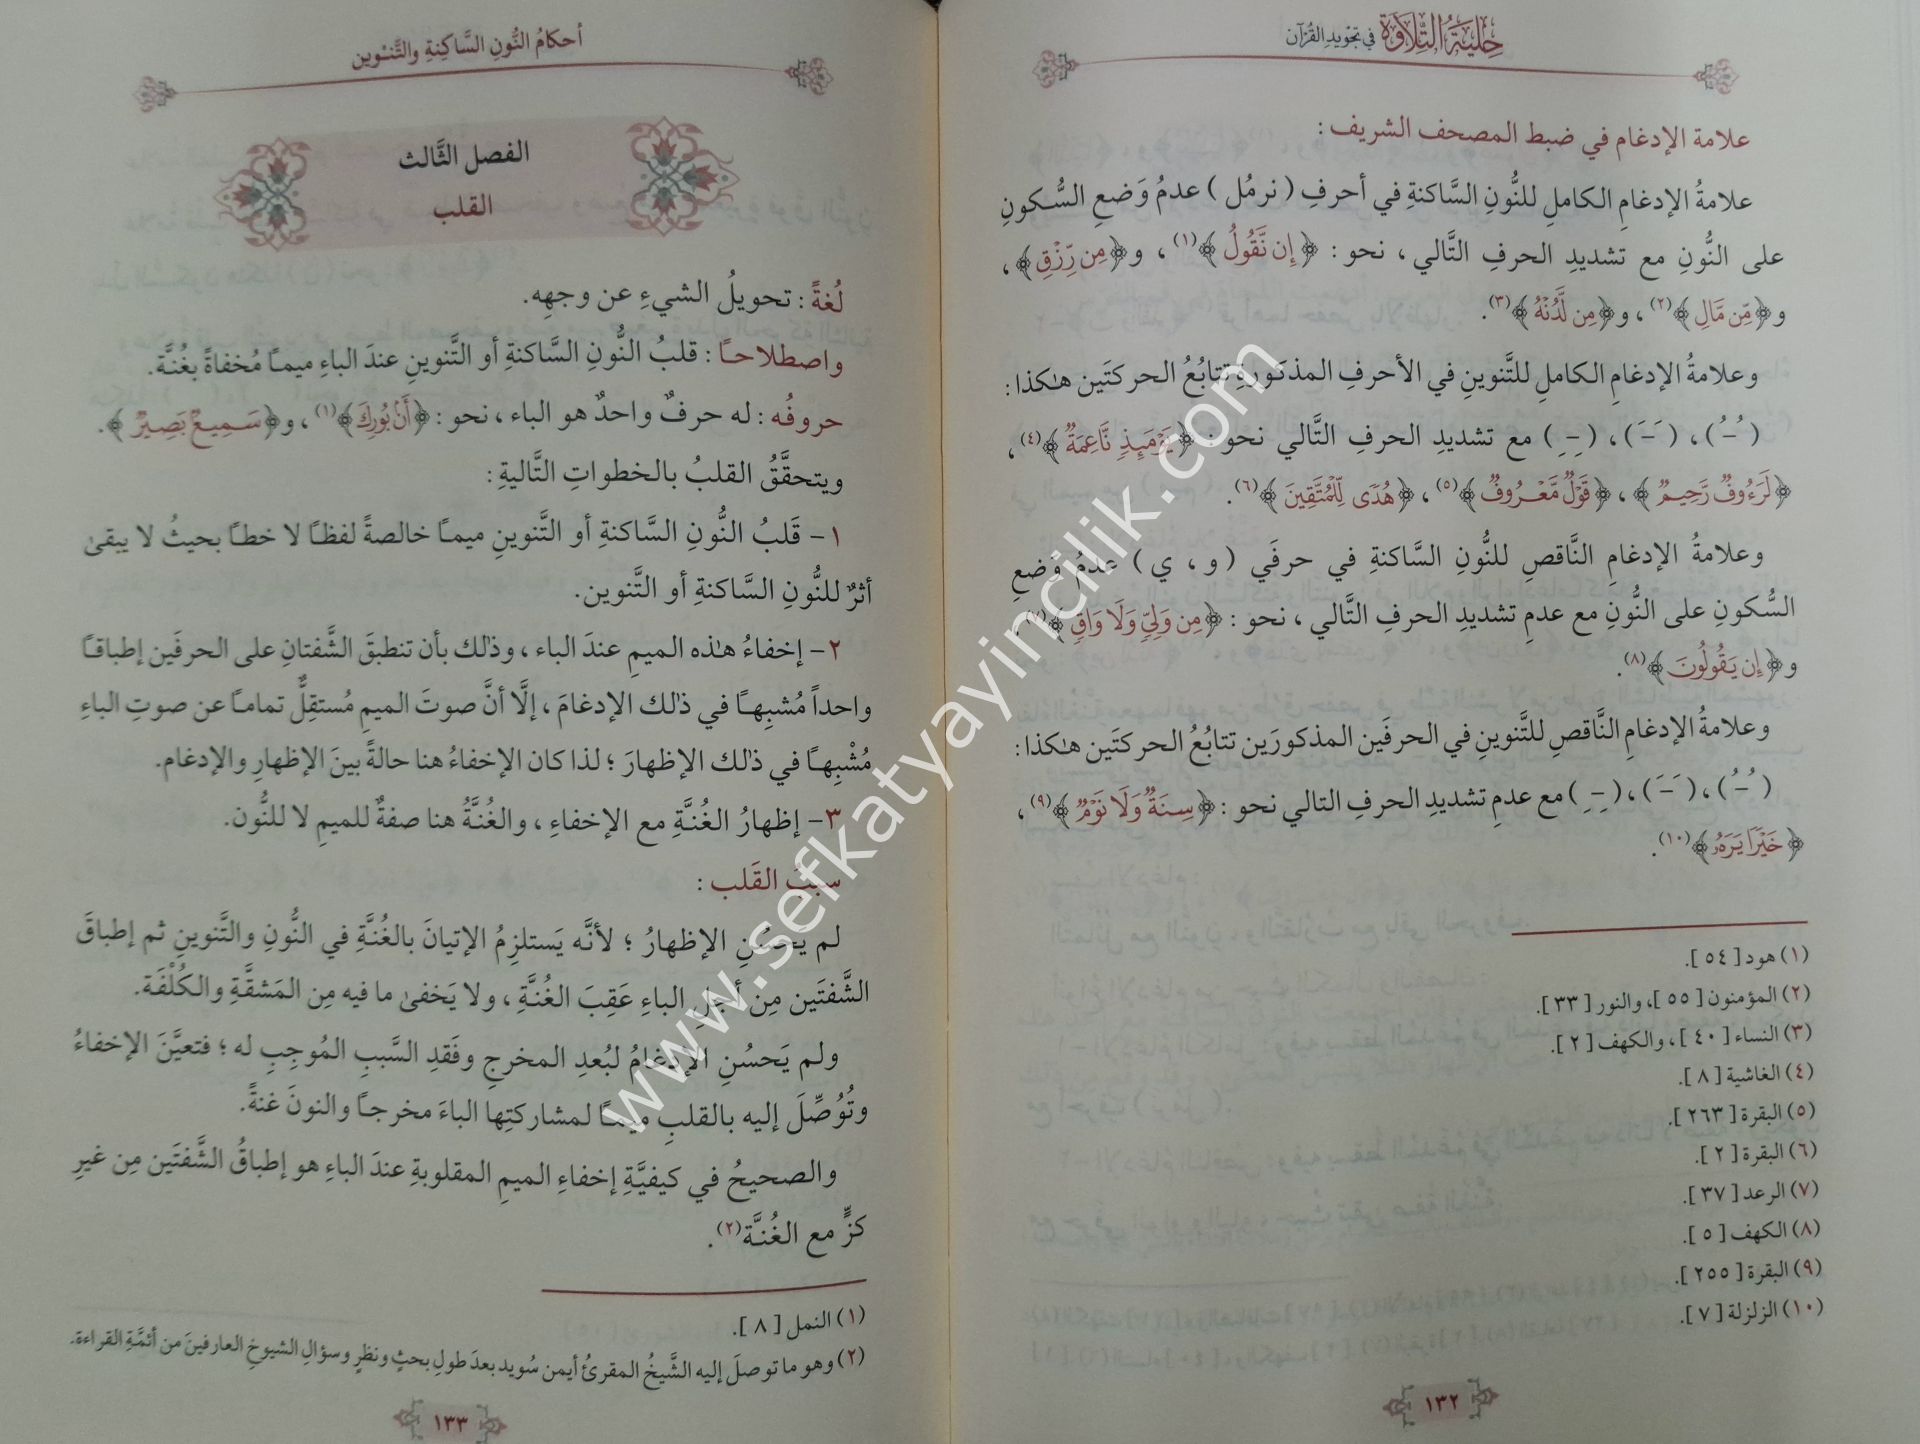 حِليَةُ التِّلَاوَة في تجويد القرآن
علامة الإدغام في ضبط المصحف الشريف :
علامةُ الإدغامِ الكاملِ للنُّونِ السَّاكنةِ في أحرفِ ( نرمُل ) عدمُ وَضعِ السُّكونِ
على النُّونِ مع تشديدِ الحرفِ التَّالي ، نحو : ﴿ إِن نَّقُولُ ﴾(١) ، و﴿مِن رِّزْقٍ﴾ ،
و﴿مِّن مَّالِ ﴾(٢) ، و﴿مِن لَّدُنْهُ ﴾(٣).
وعلامةُ الإدغامِ الكاملِ للتَّنوينِ في الأحرفِ المذكورةِ تتابُعُ الحركتَين هٰكذا :
( ـُـُ ) ، ( ـَـَ ) ، ( ـِـِ ) مع تشديدِ الحرفِ التَّالي نحو : ﴿يَوْمَئِذٍ نَّاعِمَةٌ ﴾(٤) ،
﴿لَرَءُوفٌ رَّحِيمٌ ﴾ ، ﴿قَوْلٌ مَّعْرُوفٌ ﴾(٥) ، ﴿هُدًى لِّلْمُتَّقِينَ ﴾(٦).
وعلامةُ الإدغامِ النَّاقصِ للنُّونِ السَّاكنةِ في حرفَي ( و ، ي ) عدمُ وَضعِ
السُّكونِ على النُّونِ مع عدمِ تشديدِ الحرفِ التَّالي ، نحو : ﴿مِن وَلِيٍّ وَلَا وَاقٍ ﴾(٧) ،
و﴿إِن يَقُولُونَ ﴾(٨).
وعلامةُ الإدغامِ النَّاقصِ للتَّنوينِ في الحرفَين المذكورَين تتابُعُ الحركتَين هٰكذا :
( ـُـُ ) ، ( ـَـَ ) ، ( ـِـِ ) مع عدمِ تشديدِ الحرفِ التالي نحو : ﴿سِنَةٌ وَلَا نَوْمٌ ﴾(٩) ،
﴿خَيْرًا يَرَهُ ﴾(١٠).
(١) هود [ ٥٤ ].
(٢) المؤمنون [ ٥٥ ]، والنور [ ٣٣ ].
(٣) النساء [ ٤٠ ] ، والكهف [ ٢ ].
(٤) الغاشية [ ٨ ].
(٥) البقرة [ ٢٦٣ ].
(٦) البقرة [ ٢ ].
(٧) الرعد [ ٣٧ ].
(٨) الكهف [ ٥ ].
(٩) البقرة [ ٢٥٥ ].
(١٠) الزلزلة [ ٧ ].
١٣٢
أحكامُ النُّونِ السَّاكِنةِ والتَّنوين
الفصل الثَّالث
القلب
لُغةً : تحويلُ الشيءِ عن وجهِه.
واصطلاحاً : قلبُ النُّونِ السَّاكنةِ أو التَّنوينِ عندَ الباءِ ميماً مُخفاةً بغُنَّة.
حروفُه : له حرفٌ واحدٌ هو الباء ، نحو : ﴿أَنۢ بُورِكَ﴾(١) ، و﴿سَمِيعٌۢ بَصِيرٌ ﴾.
ويتحقَّقُ القلبُ بالخطواتِ التَّاليةِ :
١- قَلبُ النُّونِ السَّاكنةِ أو التَّنوينِ ميماً خالصةً لفظاً لا خطاً بحيثُ لا يبقىٰ
أثرٌ للنُّونِ السَّاكنةِ أو التَّنوين.
٢- إخفاءُ هٰذه الميمِ عندَ الباء ، وذٰلك بأن تنطبقَ الشَّفتانِ على الحرفَين إطباقاً
واحداً مُشبِهاً في ذٰلك الإدغامَ ، إلَّا أنَّ صوتَ الميمِ مُستقِلٌّ تماماً عن صوتِ الباءِ
مُشْبِهاً في ذٰلك الإظهارَ ؛ لذا كان الإخفاءُ هنا حالةً بينَ الإظهارِ والإدغام.
٣- إظهارُ الغُنَّةِ مع الإخفاءِ ، والغُنَّةُ هنا صفةٌ للميمِ لا للنُّون.
سببُ القَلب :
لم يحسُنِ الإظهارُ ؛ لأنَّه يَستلزِمُ الإتيانَ بالغُنَّةِ في النُّونِ والتَّنوينِ ثم إطباقَ
الشَّفتَين مِن أجلِ الباءِ عَقِبَ الغُنَّةِ ، ولا يَخفىٰ ما فيه مِن المَشقَّةِ والكُلْفَة.
ولم يَحسُنِ الإدغامُ لبُعدِ المخرجِ وفَقدِ السَّببِ المُوجِبِ له ؛ فتعيَّنَ الإخفاءُ
وتُوُصِّلَ إليه بالقلبِ ميماً لمشاركتِها الباءَ مخرجاً والنونَ غنةً.
والصحيحُ في كيفيَّةِ إخفاءِ الميمِ المقلوبةِ عندَ الباءِ هو إطباقُ الشَّفتَين مِن غيرِ
كزٍّ مع الغُنَّة(٢).
(١) النمل [ ٨ ].
(٢) وهو ما توصلَ إليه الشَّيخُ المقرئُ أيمن سُويد بعدَ طولِ بحثٍ ونظرٍ وسؤالِ الشيوخِ العارفينَ من أئمَّةِ القراءة.
١٣٣
www.sefkatyayincilik.com